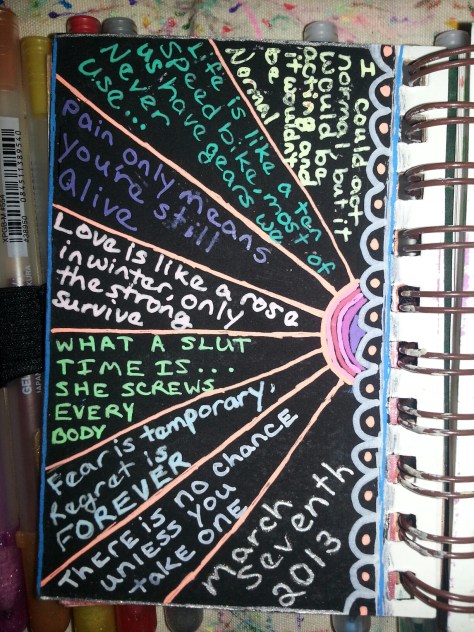 I could act
normal, but it
would be
acting and
it wouldn't
be
Normal
Life is like a ten
speed bike, most of
us have gears we
Never
Use...
pain only means
you're still
Alive
Love is like a rose
in winter, only
the strong
survive
WHAT A SLUT
TIME IS...
SHE SCREWS
EVERY
BODY
Fear is temporary,
Regret is
FOREVER
THERE IS NO CHANCE
UNLESS YOU
TAKE ONE
March
Seventh
2013